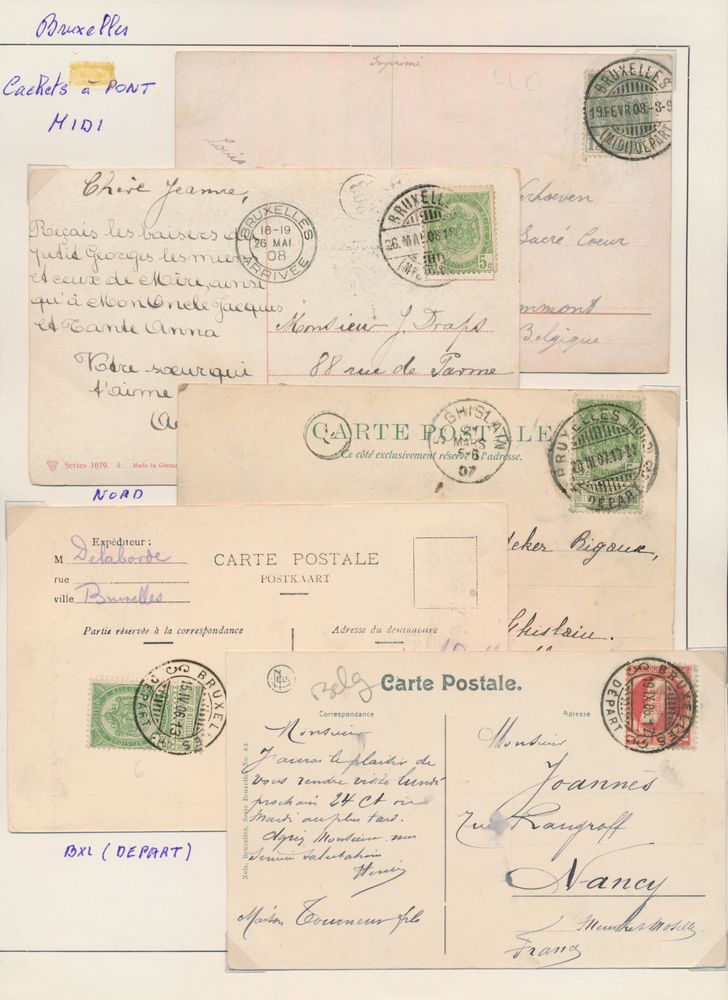 Bruxelles
Cachets à PONT
MIDI
Imprimé
BRUXELLES
19 FEVR 08
(MIDI) DEPART
Louis
Sacré Coeur
Belgique
Chère Jeanne,
Reçois les baisers d
petit Georges les miens
et ceux de Mère, ainsi
qu'à Mon Oncle Jacques
et Tante Anna
Votre soeur qui
t'aime
BRUXELLES
18-19
26 MAI
08
ARRIVÉE
BRUXELLE
26 MAI 08
5c
Monsieur J. Draps
88 rue de Parme
Series 1679. 4. Made in Germa
NORD
CARTE POSTALE
Ce côté exclusivement réservé à l'adresse.
ST GHISLAIN
21
MARS
5-6
07
BRUXELLES (NORD)
DÉPART
Rigaux,
Ghislain.
Expéditeur :
M Delaborde
rue
ville Bruxelles
CARTE POSTALE
POSTKAART
Partie réservée à la correspondance
Adresse du destinataire
BRUXELLES
15 IV 06
DEPART
BXL (DEPART)
Belg
Carte Postale.
Correspondance
Adresse
BRUXELLES
DÉPART
Nels, Bruxelles, Serie Bruxelles No. 62
Monsieur
J'aurai le plaisir de
vous rendre visite lundi
prochain 24 Ct ou
Mardi au plus tard.
Agréez Monsieur mes
salutations
Maison Tourneur fils
Monsieur
Joannès
Rue
Nancy
Meurthe & Moselle
France